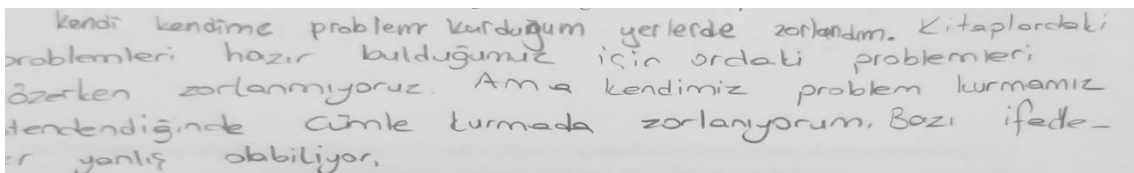 kendi kendime problemr kurduğum yerlerde zorlandım. Kitaplardaki
problemleri hazır bulduğumuz için ordaki problemleri
özerken zorlanmıyoruz. Ama kendimiz problem kurmamız
stendendiğinde cümle kurmada zorlanıyorum. Bazı ifade-
er yanlış olabiliyor.